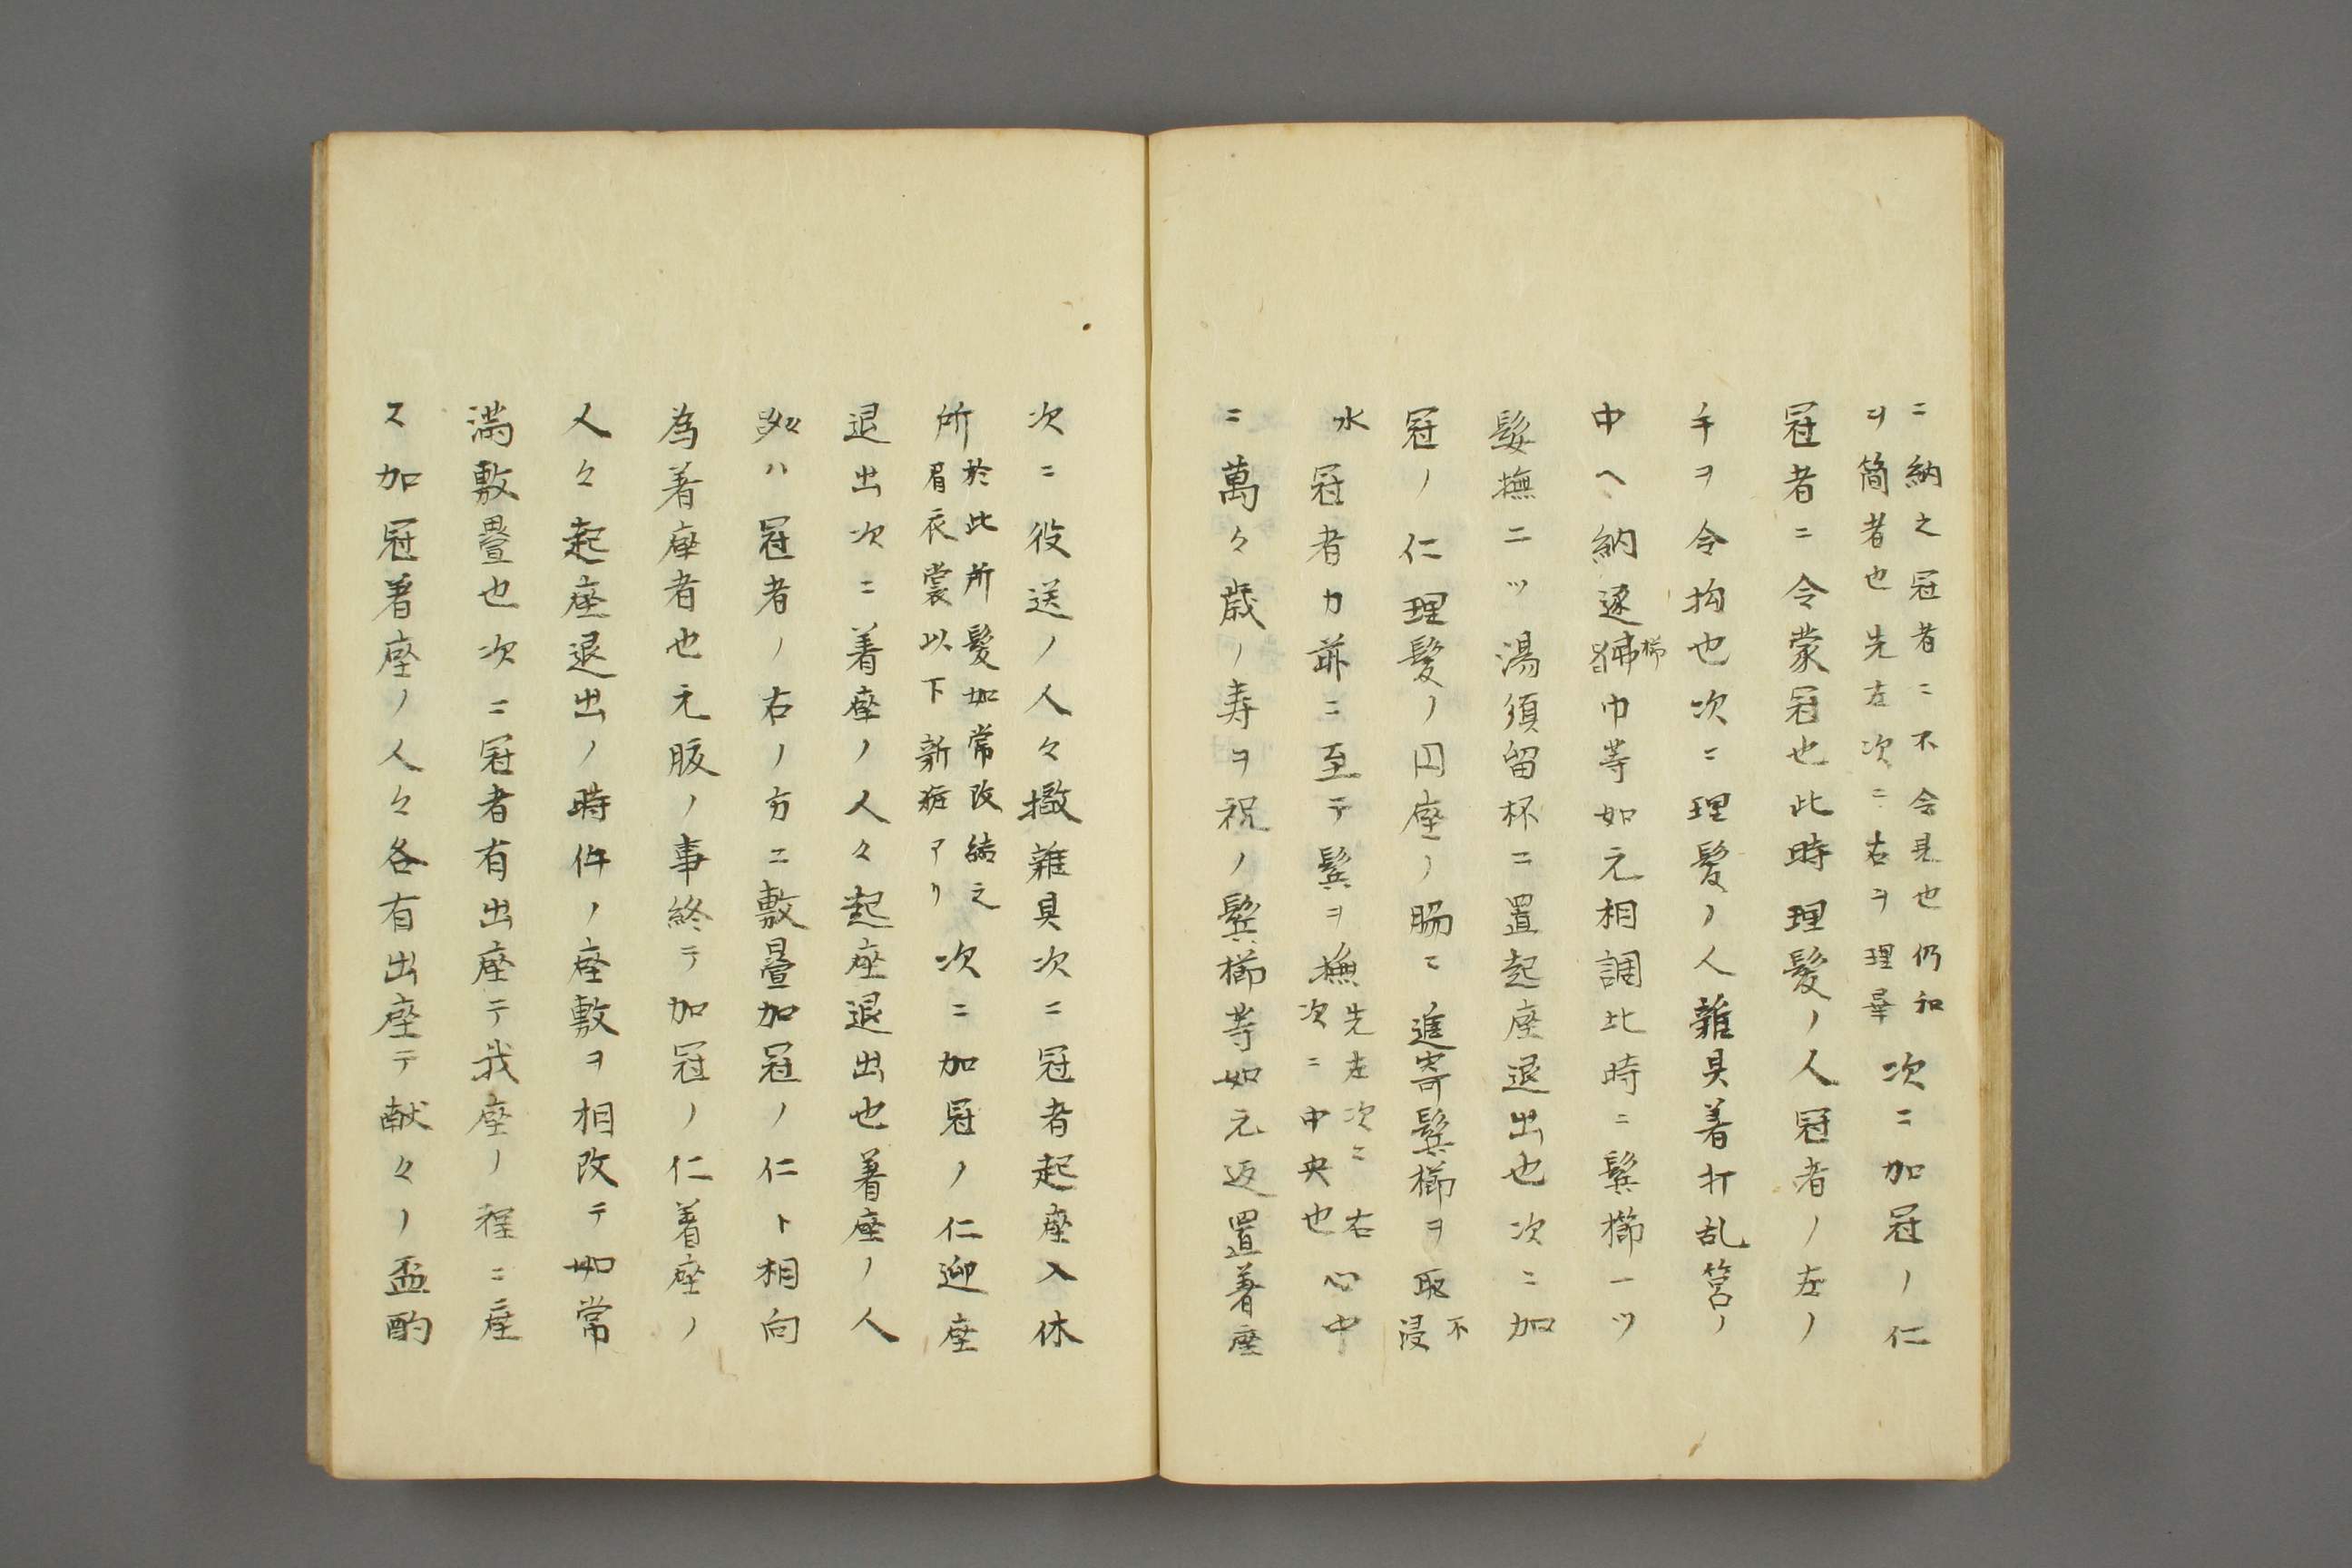 ニ納之冠者ニ不会見也仍和
ヲ簡者也先左次ニ右ヲ理畢
次ニ加冠ノ仁
冠者ニ令蒙冠也此時理髪ノ人冠者ノ左ノ
手ヲ令拘也次ニ理髪ノ人雑具着打乱筥ノ
中ヘ納逐巾等如元相調此時ニ鬂櫛一ツ
櫛
髪撫二ツ湯須留杯ニ置起座退出也次ニ加
冠ノ仁理髪ノ円座ノ腸ニ進寄鬂櫛ヲ取
不
浸
水冠者カ前ニ至テ鬂ヲ撫
先左次ニ右
次ニ中央也
心中
ニ萬々歳ノ寿ヲ祝ノ鬂櫛等如元返置着座
次ニ役送ノ人々撤雑具次ニ冠者起座入休
所
於此所髪如常改結之
眉衣裳以下新粧アリ
次ニ加冠ノ仁迎座
退出次ニ着座ノ人々起座退出也着座ノ人
ハ冠者ノ右ノ方ニ敷畳加冠ノ仁ト相向
為着座者也元服ノ事終テ加冠ノ仁着座ノ
人々起座退出ノ時件ノ座敷ヲ相改テ如常
満敷畳也次ニ冠者有出座テ我座ノ程ニ座
ス加冠着座ノ人々各有出座テ献々ノ盃酌